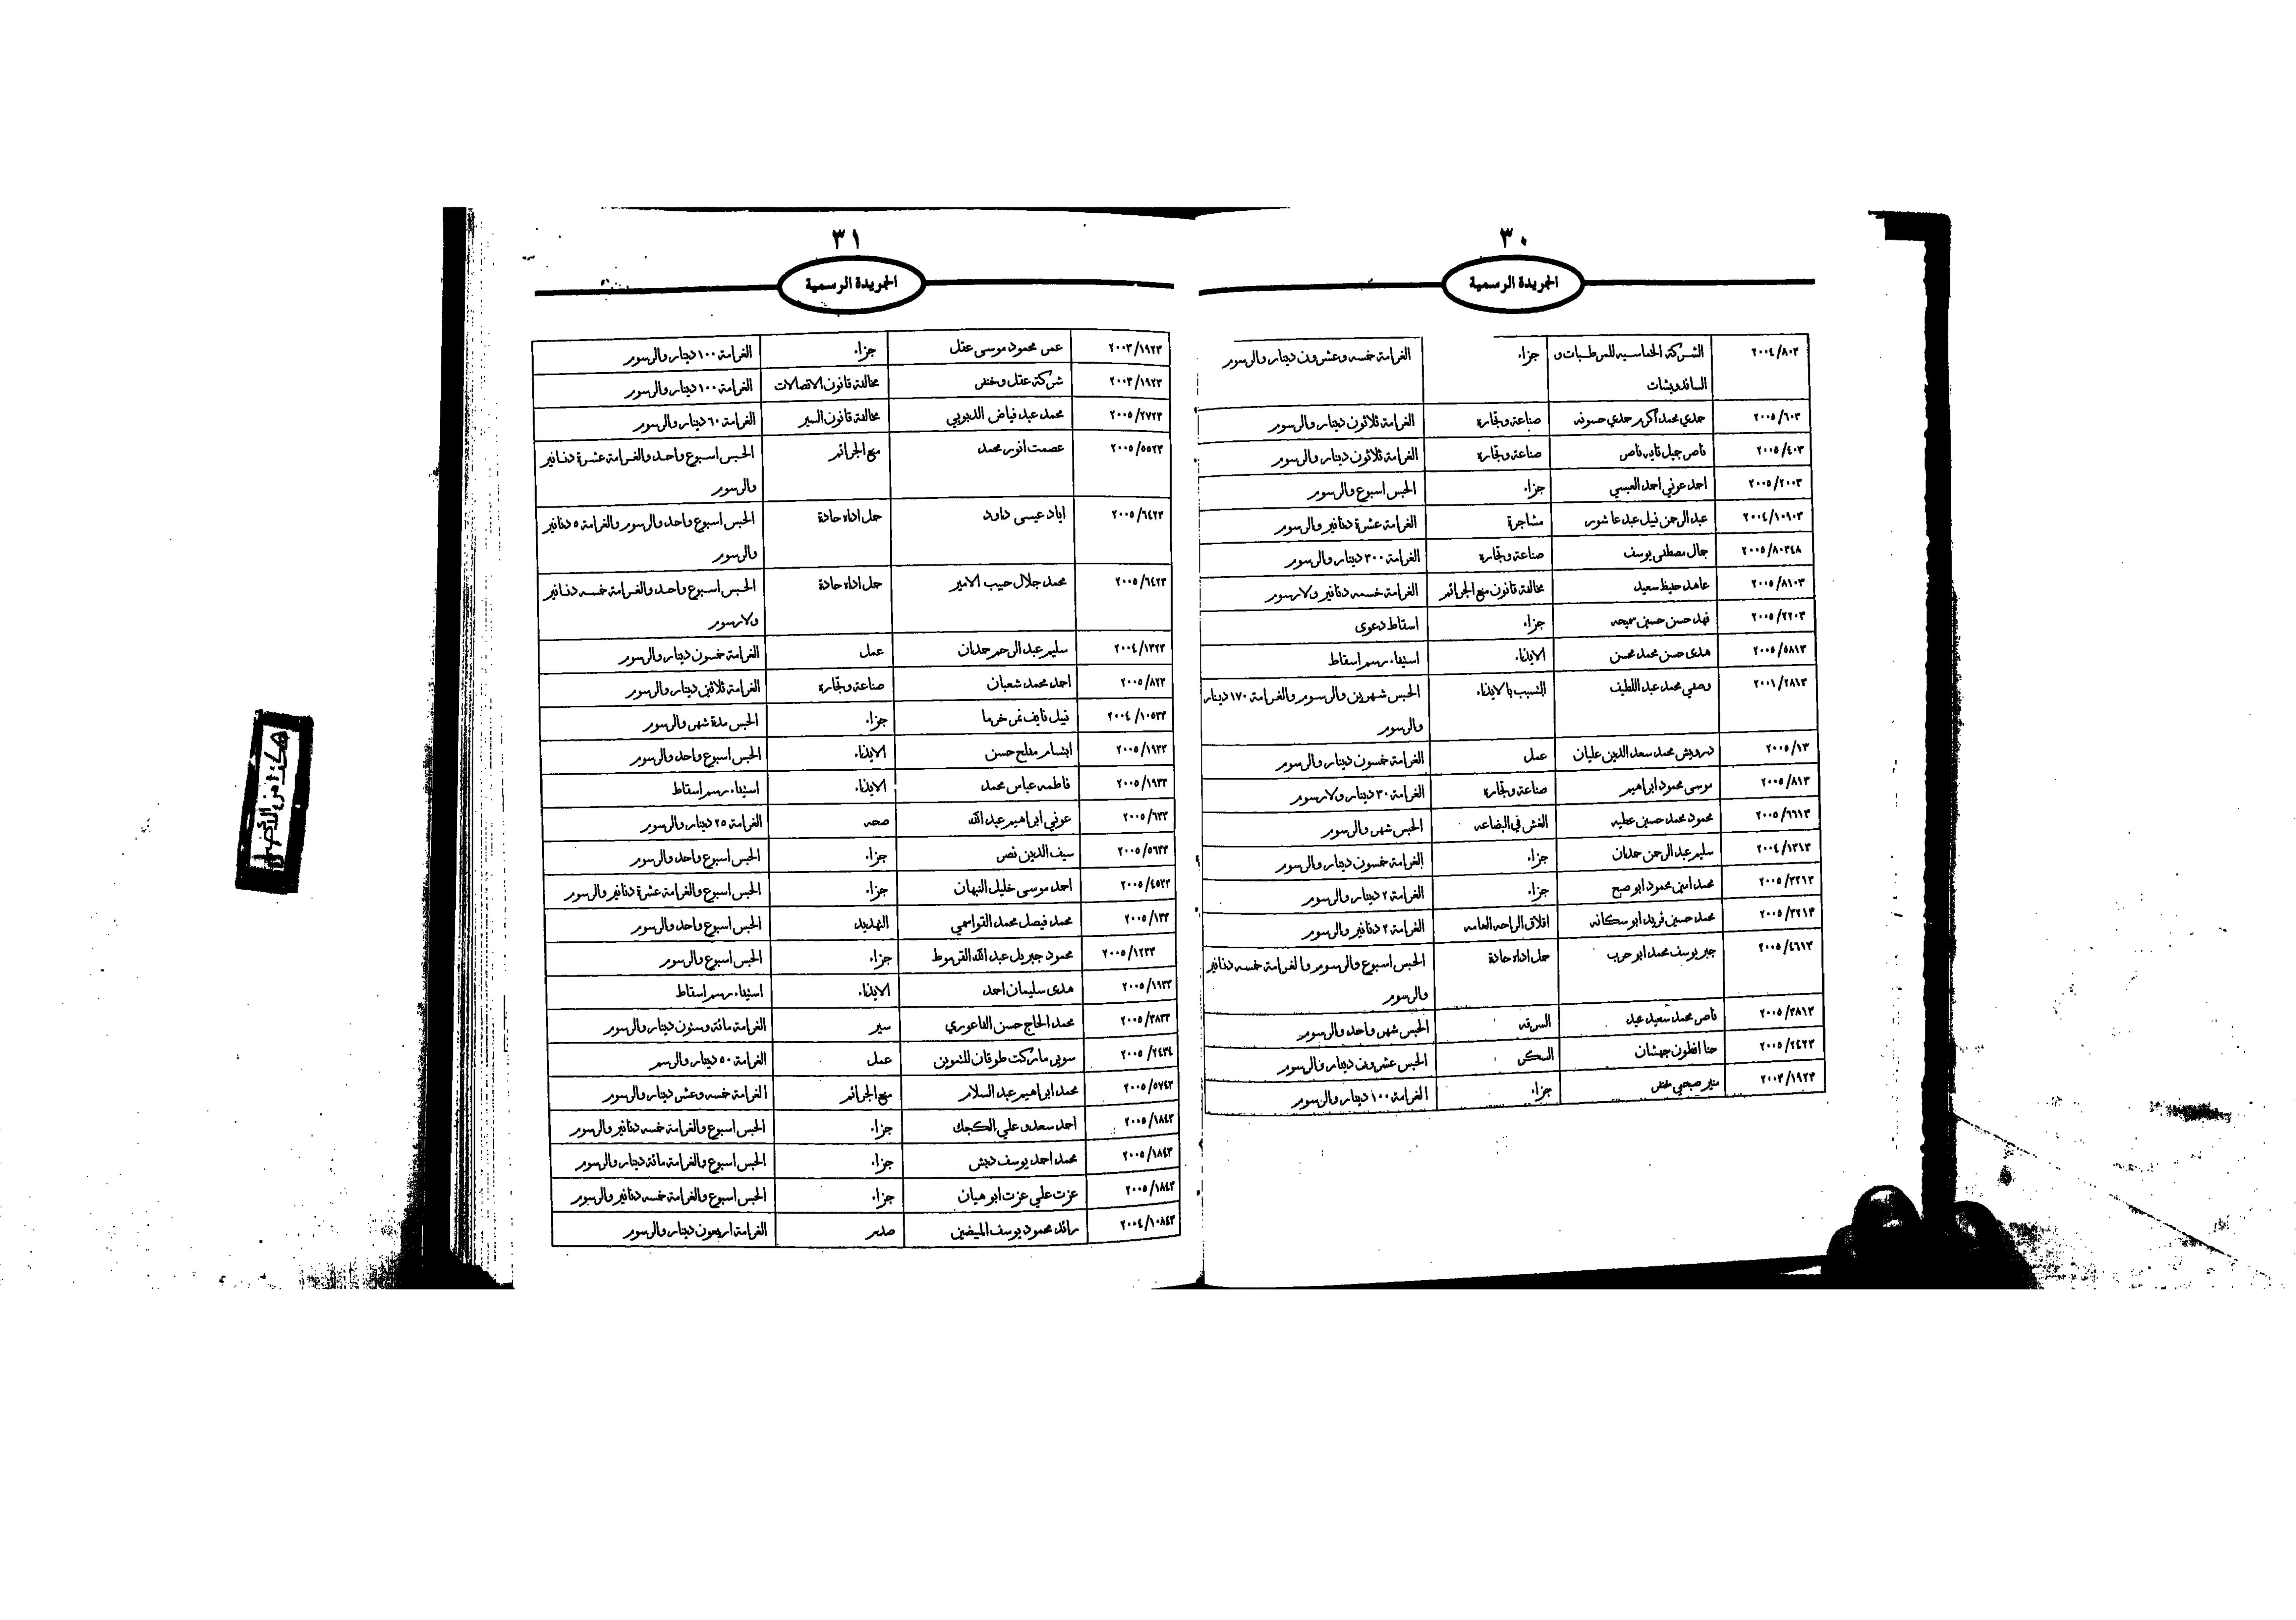 ٣٠
الجريدة الرسمية
٢٠٠٤/٨٠٣ الشركة الخماسيه للمرطبات و جزاء الغرامة خمسه وعشرون دينار والرسوم
الساندويشات
٢٠٠٥/٦٠٣ حمدي محمد اكرم حمدي حسونه صناعة وتجارة الغرامة ثلاثون دينار والرسوم
٢٠٠٥/٤٠٣ ناصر جميل ناصر صناعة وتجارة الغرامة ثلاثون دينار والرسوم
٢٠٠٥/٢٠٠٣ احمد عوني احمد العبسي جزاء الحبس اسبوع والرسوم
٢٠٠٤/١٠٩٠٣ عبدالرحمن نبيل عبد عاشور مشاجرة الغرامة عشرة دنانير والرسوم
٢٠٠٥/٨٠٣٤٨ جمال مصطفى يوسف صناعة وتجارة الغرامة ٣٠٠ دينار والرسوم
٢٠٠٥/٨١٠٣ عاهد حفيظ سعيد مخالفة قانون منع الجرائم الغرامة خمسه دنانير ولا رسوم
٢٠٠٥/٢٢٠٣ فهد حسن حسين سميحه جزاء اسقاط دعوى
٢٠٠٥/٥٨١٣ هدى حسن محمد محسن الايذاء استيفاء رسم اسقاط
٢٠٠١/٢٨١٣ وصفي محمد عبد اللطيف التسبب بالايذاء الحبس شهرين والرسوم والغرامة ١٧٠ دينار
والرسوم
٢٠٠٥/١٣ درويش محمد سعد الدين عليان عمل الغرامة خمسون دينار والرسوم
٢٠٠٥/٨١٣ موسى محمود ابراهيم صناعة وتجارة الغرامة ٣٠ دينار ولا رسوم
٢٠٠٥/٦٦١٣ محمود محمد حسين عطيه الغش في البضاعه الحبس شهر والرسوم
٢٠٠٤/١٣١٣ سليم عبد الرحمن حمدان جزاء الغرامة خمسون دينار والرسوم
٢٠٠٥/٣٢١٣ محمد امين محمود ابو صبح جزاء الغرامة ٢ دينار والرسوم
٢٠٠٥/٣٢١٣ محمد حسين فريد ابو سكانه اقلاق الراحه العامه الغرامة ٢ دنانير والرسوم
٢٠٠٥/٤٦١٣ جبر يوسف محمد ابو حرب حمل اداه حادة الحبس اسبوع والرسوم والغرامة خمسه دنانير
والرسوم
٢٠٠٥/٣٨١٣ ناصر محمد سعيد عيد السرقه الحبس شهر واحد والرسوم
٢٠٠٥/٢٤٢٣ حنا افطون جهشان السكر الحبس عشرون دينار والرسوم
٢٠٠٣/١٩٢٣ منير صبحي خضر جزاء الغرامة ١٠٠ دينار والرسوم
٣١
الجريدة الرسمية
٢٠٠٣/١٩٢٣ عمر محمود موسى عقل جزاء الغرامة ١٠٠ دينار والرسوم
٢٠٠٣/١٩٢٣ شركة عقل وخضر مخالفة قانون الاتصالات الغرامة ١٠٠ دينار والرسوم
٢٠٠٥/٢٧٢٣ محمد عبد فياض الدبوبي مخالفة قانون السير الغرامة ٦٠ دينار والرسوم
٢٠٠٥/٥٥٢٣ عصمت انور محمد منع الجرائم الحبس اسبوع واحد والغرامة عشرة دنانير
والرسوم
٢٠٠٥/٦٤٢٣ اياد عيسى داود حمل اداه حادة الحبس اسبوع واحد والرسوم والغرامة ٥ دنانير
والرسوم
٢٠٠٥/٦٤٢٣ محمد جلال حبيب الامير حمل اداه حادة الحبس اسبوع واحد والغرامة خمسه دنانير
ولا رسوم
٢٠٠٤/١٣٢٣ سليم عبد الرحم حمدان عمل الغرامة خمسون دينار والرسوم
٢٠٠٥/٨٢٣ احمد محمد شعبان صناعة وتجارة الغرامة ثلاثين دينار والرسوم
٢٠٠٤/١٠٥٣٣ نبيل نايف نمر خرما جزاء الحبس مدة شهر والرسوم
٢٠٠٥/١٩٣٣ ابتسام مفلح حسن الايذاء الحبس اسبوع واحد والرسوم
٢٠٠٥/١٩٣٣ فاطمه عباس محمد الايذاء استيفاء رسم اسقاط
٢٠٠٥/٦٣٣ عوني ابراهيم عبد الله صحه الغرامة ٢٥ دينار والرسوم
٢٠٠٥/٥٦٣٣ سيف الدين نصر جزاء الحبس اسبوع واحد والرسوم
٢٠٠٥/٤٥٣٣ احمد موسى خليل النبهان جزاء الحبس اسبوع والغرامة عشرة دنانير والرسوم
٢٠٠٥/١٣٣ محمد فيصل محمد القواسمي التهديد الحبس اسبوع واحد والرسوم
٢٠٠٥/١٢٣٣ محمود جبريل عبد الله القرموط جزاء الحبس اسبوع والرسوم
٢٠٠٥/١٩٣٣ هدى سليمان احمد الايذاء استيفاء رسم اسقاط
٢٠٠٥/٣٨٣٣ محمد الحاج حسن الفاعوري سير الغرامة مائة وستون دينار والرسوم
٢٠٠٥/٢٤٣٤ سوبر ماركت طوقان للتموين عمل الغرامة ٥٠ دينار والرسم
٢٠٠٥/٥٧٤٣ محمد ابراهيم عبد السلام منع الجرائم الغرامة خمسه وعشر دينار والرسوم
٢٠٠٥/١٨٤٣ احمد سعدو علي الكجك جزاء الحبس اسبوع والغرامة خمسه دنانير والرسوم
٢٠٠٥/١٨٤٣ محمد احمد يوسف دبش جزاء الحبس اسبوع والغرامة مائة دينار والرسوم
٢٠٠٥/١٨٤٣ عزت علي عزت ابو هيان جزاء الحبس اسبوع والغرامة خمسه دنانير والرسوم
٢٠٠٤/١٠٨٤٣ رائد محمود يوسف المبيضين صدم الغرامة اربعون دينار والرسوم